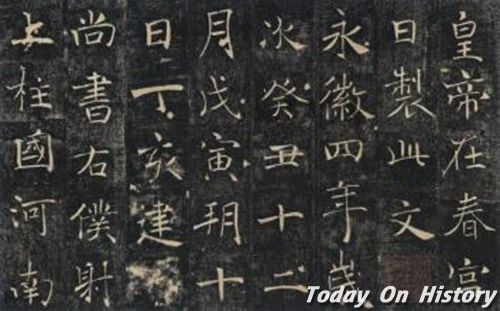 皇帝在春宮
日製此文
永徽四年歲
次癸丑十二
月戊寅朔十
日丁亥建
尚書右僕射
上柱國河南
Today On History